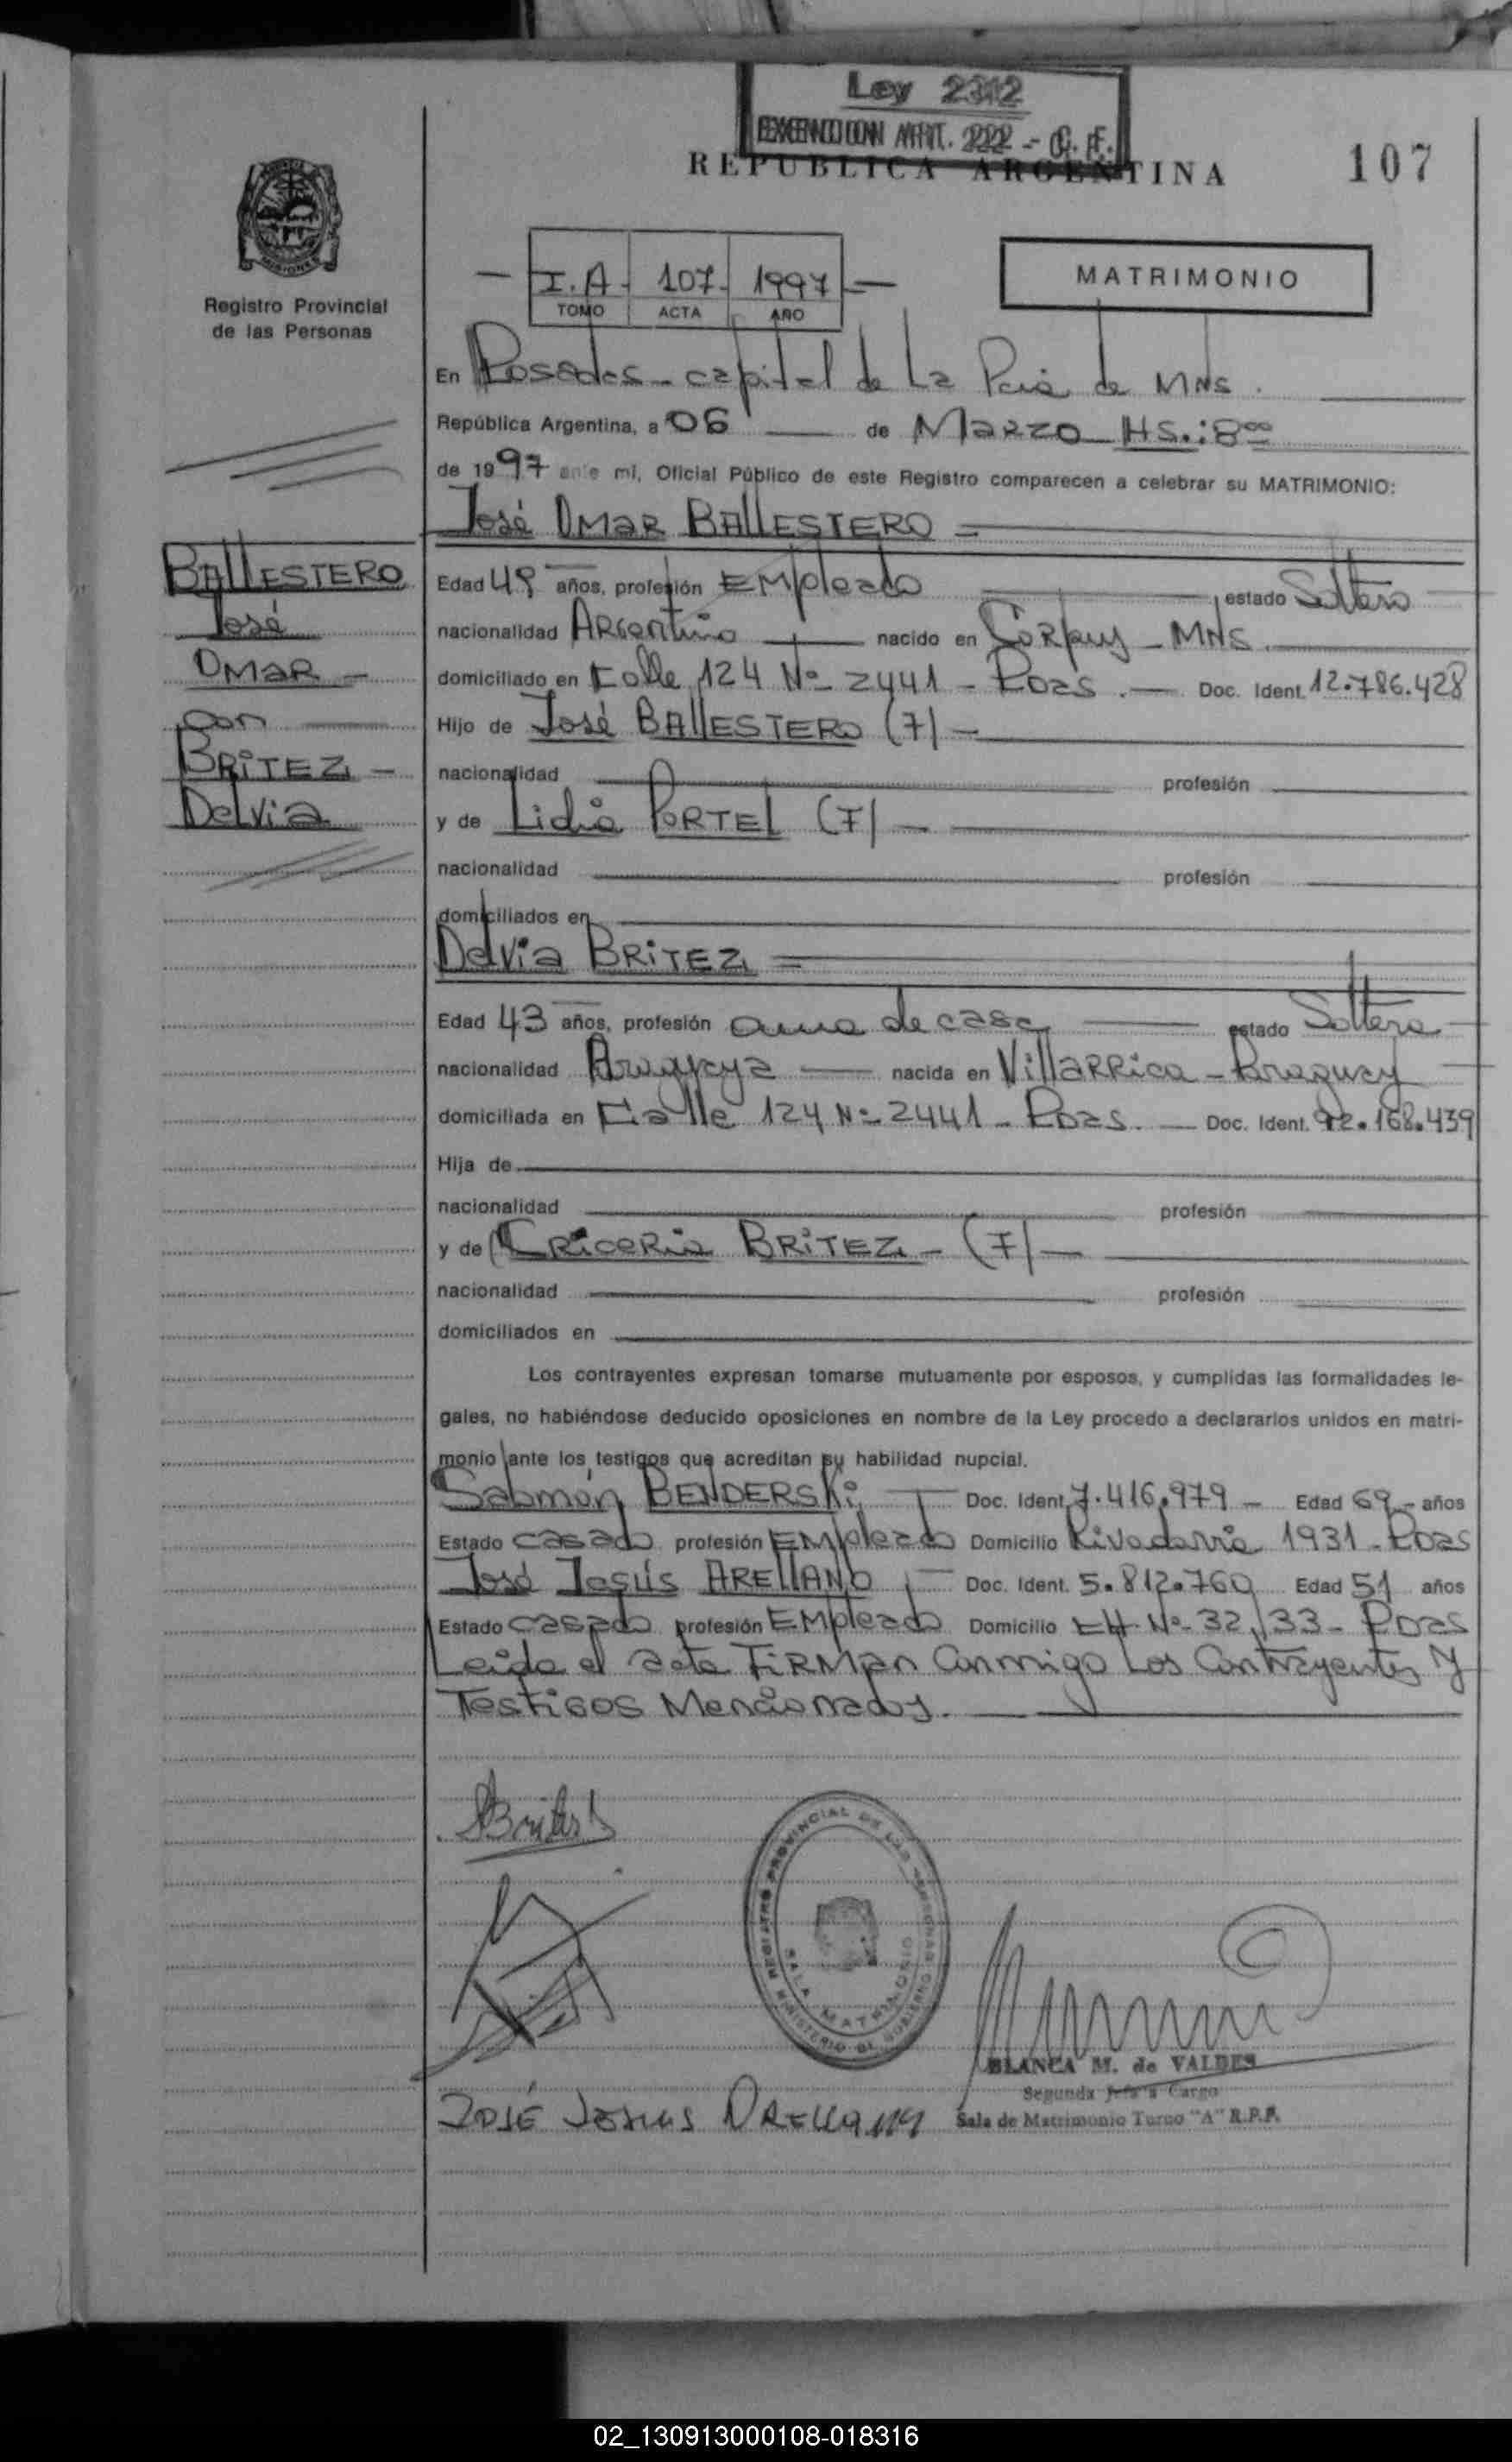 Ley 2312
EXENCION ART. 222 - C. F.
REPUBLICA ARGENTINA
107
Registro Provincial
de las Personas
I.A - 107 - 1997
TOMO ACTA AÑO
MATRIMONIO
En Posadas - capital de La Pcia de MNS.
República Argentina, a 06 de Marzo Hs.: 8ºº
de 1997 ante mi, Oficial Público de este Registro comparecen a celebrar su MATRIMONIO:
José Omar BALLESTERO =
BALLESTERO
José
Omar -
con
BRiTEZ -
Delvia
Edad 49 años, profesión Empleado estado Soltero
nacionalidad Argentino nacido en Corpus - MNS
domiciliado en Calle 124 Nº 2441 - Pdas. Doc. Ident. 12.786.428
Hijo de José BALLESTERO (7) -
nacionalidad profesión
y de Lidia PORTEL (7) -
nacionalidad profesión
domiciliados en
Delvia BRiTEZ =
Edad 43 años, profesión ama de casa estado Soltera
nacionalidad Paraguaya nacida en Villarrica - Paraguay
domiciliada en Calle 124 Nº 2441 - Pdas. Doc. Ident. 92.168.439
Hija de
nacionalidad profesión
y de BRiTEZ - (7) -
nacionalidad profesión
domiciliados en
Los contrayentes expresan tomarse mutuamente por esposos, y cumplidas las formalidades le-
gales, no habiéndose deducido oposiciones en nombre de la Ley procedo a declararlos unidos en matri-
monio ante los testigos que acreditan su habilidad nupcial.
Salomón BENDERSKi Doc. Ident. 7.416.979 - Edad 69 - años
Estado casado profesión Empleado Domicilio Rivadavia 1931 - Pdas
José Jesús ARELLANO Doc. Ident. 5.812.760 Edad 51 años
Estado casado profesión Empleado Domicilio CH. Nº 32/33 - Pdas
Leida el acta Firman Conmigo Los Contrayentes Y
Testigos Mencionados.
REGISTRO PROVINCIAL DE LAS PERSONAS
SALA MATRIMONIO
MINISTERIO DE GOBIERNO
BLANCA M. de VALDES
Segunda Jefa a Cargo
Sala de Matrimonio Turno "A" R.P.P.
JOSÉ JESUS ARELLANO
02_130913000108-018316